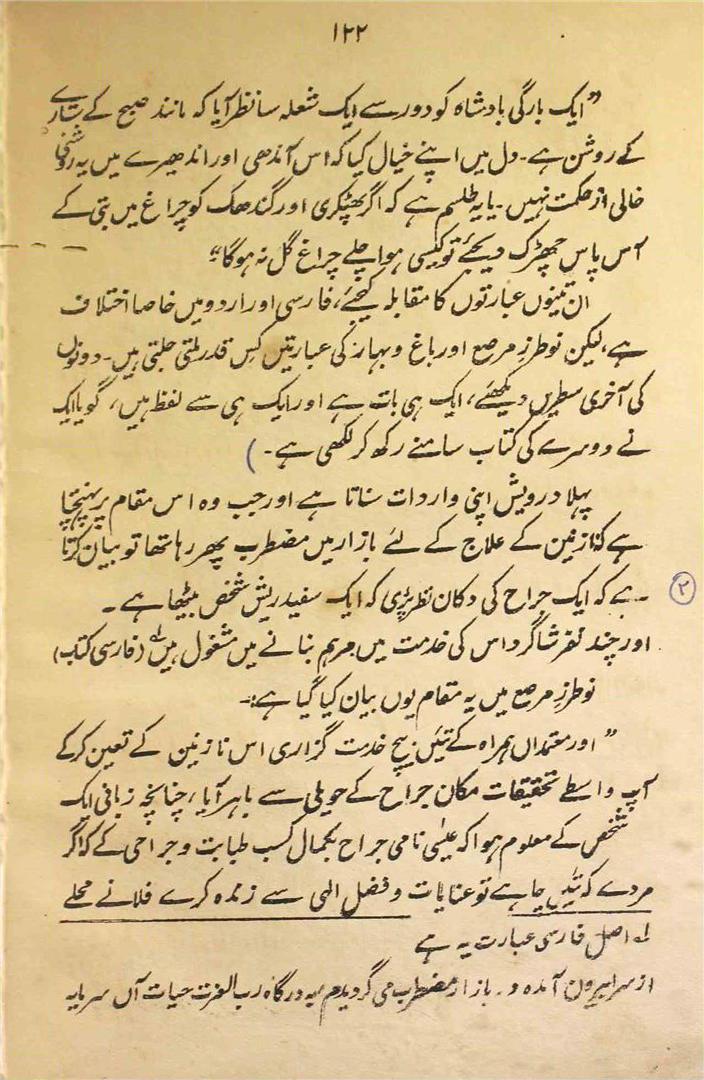 ۱۲۲
”ایک بارگی بادشاہ کو دور سے ایک شعلہ سا نظر آیا کہ مانند صبح کے ستارے
کے روشن ہے۔ دل میں اپنے خیال کیا کہ اس آندھی اور اندھیرے میں یہ روشنی
خالی از حکمت نہیں۔ یا یہ طلسم ہے کہ اگر پھٹکری اور گندھک کو چراغ میں بتی کے
آس پاس چھڑک دیجئے تو کیسی ہوا چلے چراغ گل نہ ہوگا“
ان تینوں عبارتوں کا مقابلہ کیجئے، فارسی اور اردو میں خاصا اختلاف
ہے، لیکن نو طرزِ مرصع اور باغ و بہار کی عبارتیں کس قدر ملتی جلتی ہیں۔ دونوں
کی آخری سطریں دیکھئے، ایک ہی بات ہے اور ایک ہی سے لفظ ہیں، گویا ایک
نے دوسرے کی کتاب سامنے رکھ کر لکھی ہے۔ )
پہلا درویش اپنی واردات سناتا ہے اور جب وہ اس مقام پر پہنچتا
ہے کہ نازنین کے علاج کے لئے بازار میں مضطرب پھر رہا تھا تو بیان کرتا
۲ ہے کہ ایک جراح کی دکان نظر پڑی کہ ایک سفید ریش شخص بیٹھا ہے۔
اور چند نفر شاگرد اس کی خدمت میں مرہم بنانے میں مشغول ہیں۱ (فارسی کتاب)
نو طرزِ مرصع میں یہ مقام یوں بیان کیا گیا ہے:۔
”اور معتمدان ہمراہ کے تئیں بیچ خدمت گزاری اس نازنین کے تعین کر کے
آپ واسطے تحقیقات مکان جراح کے حویلی سے باہر آیا، چنانچہ زبانی ایک
شخص کے معلوم ہوا کہ عیسیٰ نامی جراح بکمال کسب طبابت و جراحی کے کہ اگر
مردے کے تئیں چاہے تو عنایات و فضل الٰہی سے زندہ کرے فلانے محلے
۱؎ اصل فارسی عبارت یہ ہے
از سرا بیرون آمدہ و بازار مضطرب می گردیدم بہ درگاہ رب العزت حیات آں سرمایہ